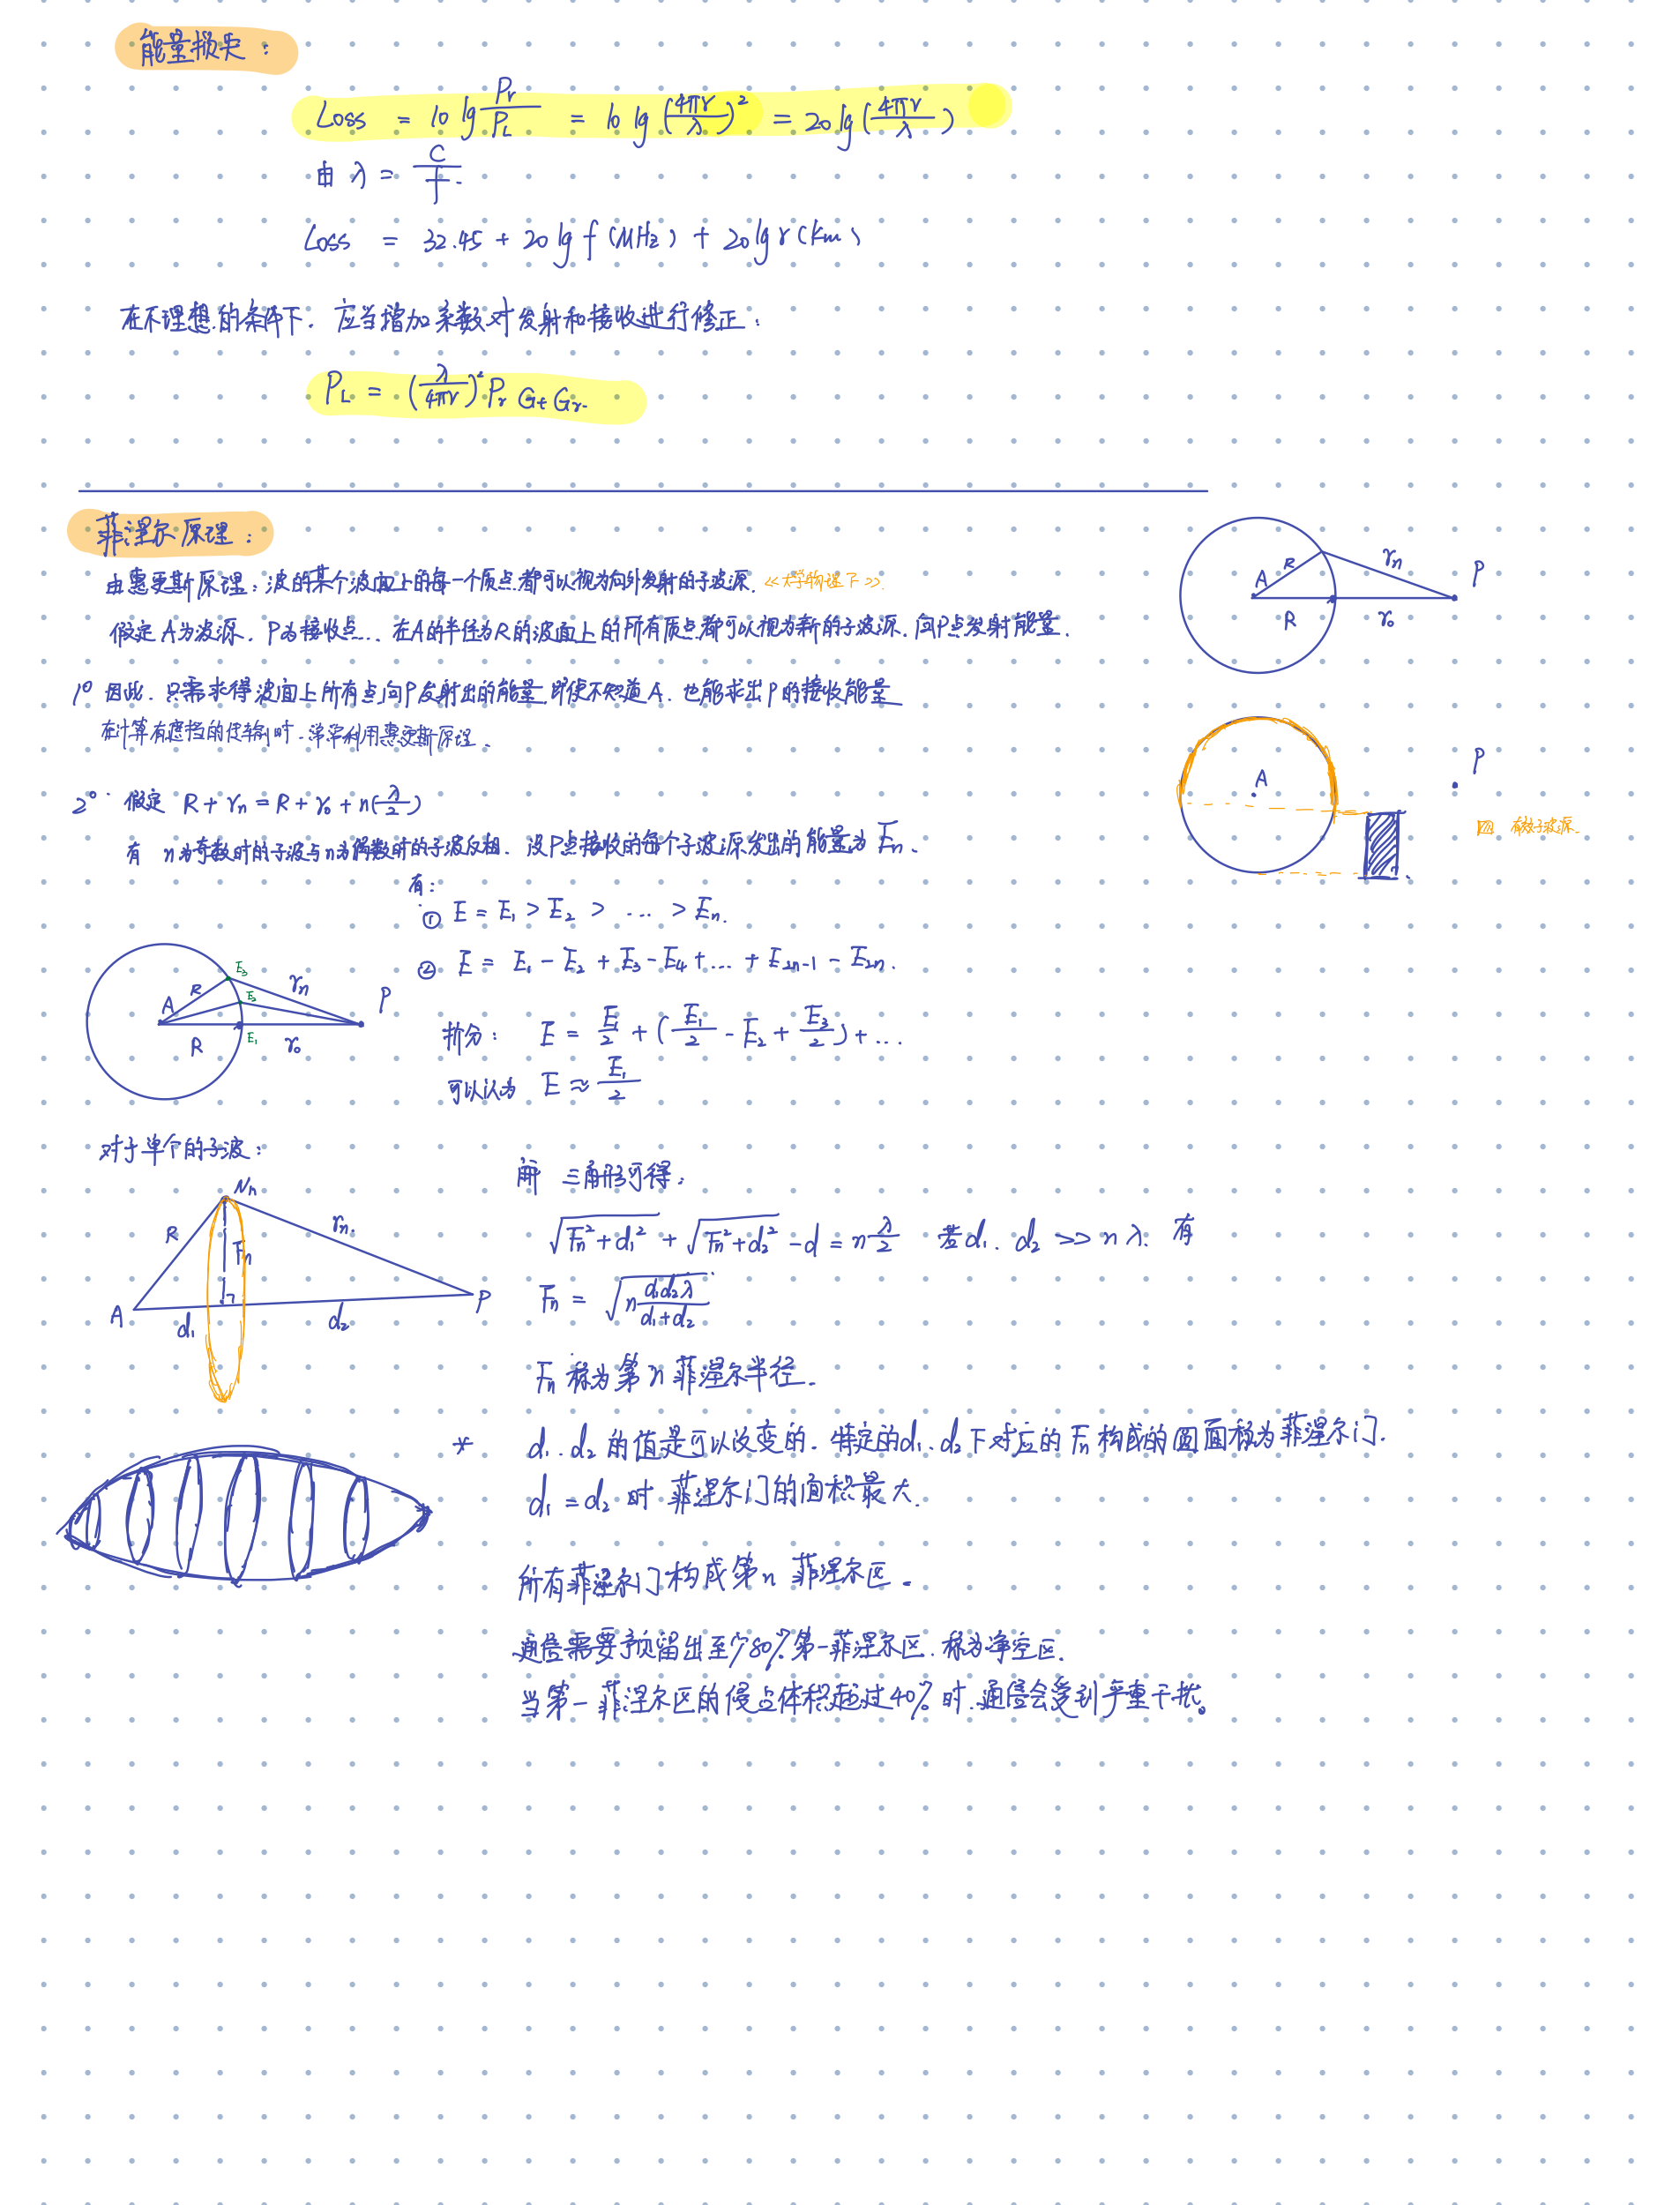 能量损失：
Loss = 10 lg Pr/PL = 10 lg (4πr/λ)² = 20 lg (4πr/λ)
由 λ = c/f.
Loss = 32.45 + 20 lg f (MHz) + 20 lg r (km)
在不理想的条件下. 应当增加系数对发射和接收进行修正：
PL = (λ/4πr)² Pr Gt Gr.
菲涅尔原理：
由惠更斯原理：波的某个波面上的每一个质点.都可以视为向外发射的子波源. 《大学物理下》.
假定 A为波源. P为接收点. 在A的半径为R的波面上的所有质点.都可以视为新的子波源.向P点发射能量.
1° 因此. 只需求得波面上所有点向P发射出的能量.即使不知道A. 也能求出P的接收能量
在计算有遮挡的传输时.常常利用惠更斯原理.
2° 假定 R + rn = R + r₀ + n(λ/2)
有 n为奇数时的子波与n为偶数时的子波反相. 设P点接收的每个子波源发出的能量为 En.
有：
① E = E₁ > E₂ > ... > En.
② E = E₁ - E₂ + E₃ - E₄ + ... + E2n-1 - E2n.
拆分： E = E₁/2 + (E₁/2 - E₂ + E₃/2) + ...
可以认为 E ≈ E₁/2
A R rn P
R r₀
A P
有效子波源.
E₃
E₂
A R rn P
R E₁ r₀
对于单个的子波：
Nn
R Fn rn.
A d₁ d₂ P
解 三角形可得：
√(Fn²+d₁²) + √(Fn²+d₂²) - d = n λ/2 若d₁. d₂ >> nλ. 有
Fn = √(n d₁d₂λ/(d₁+d₂))
Fn 称为第 n 菲涅尔半径.
* d₁.d₂ 的值是可以改变的. 特定的d₁.d₂下对应的 Fn 构成的圆面称为菲涅尔门.
d₁ = d₂ 时 菲涅尔门的面积最大.
所有菲涅尔门构成第n 菲涅尔区.
通信需要预留出至少80%第一菲涅尔区.称为净空区.
当第一菲涅尔区的侵占体积超过40%时.通信会受到严重干扰。